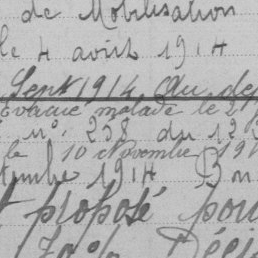 de Mobilisation
le 4 août 1914
Sept 1914. Au de
Evacué malade le 2
n° 258 du 12
le 10 Novembre 191
tembre 1914 Bon
t proposé pou
70% Déci